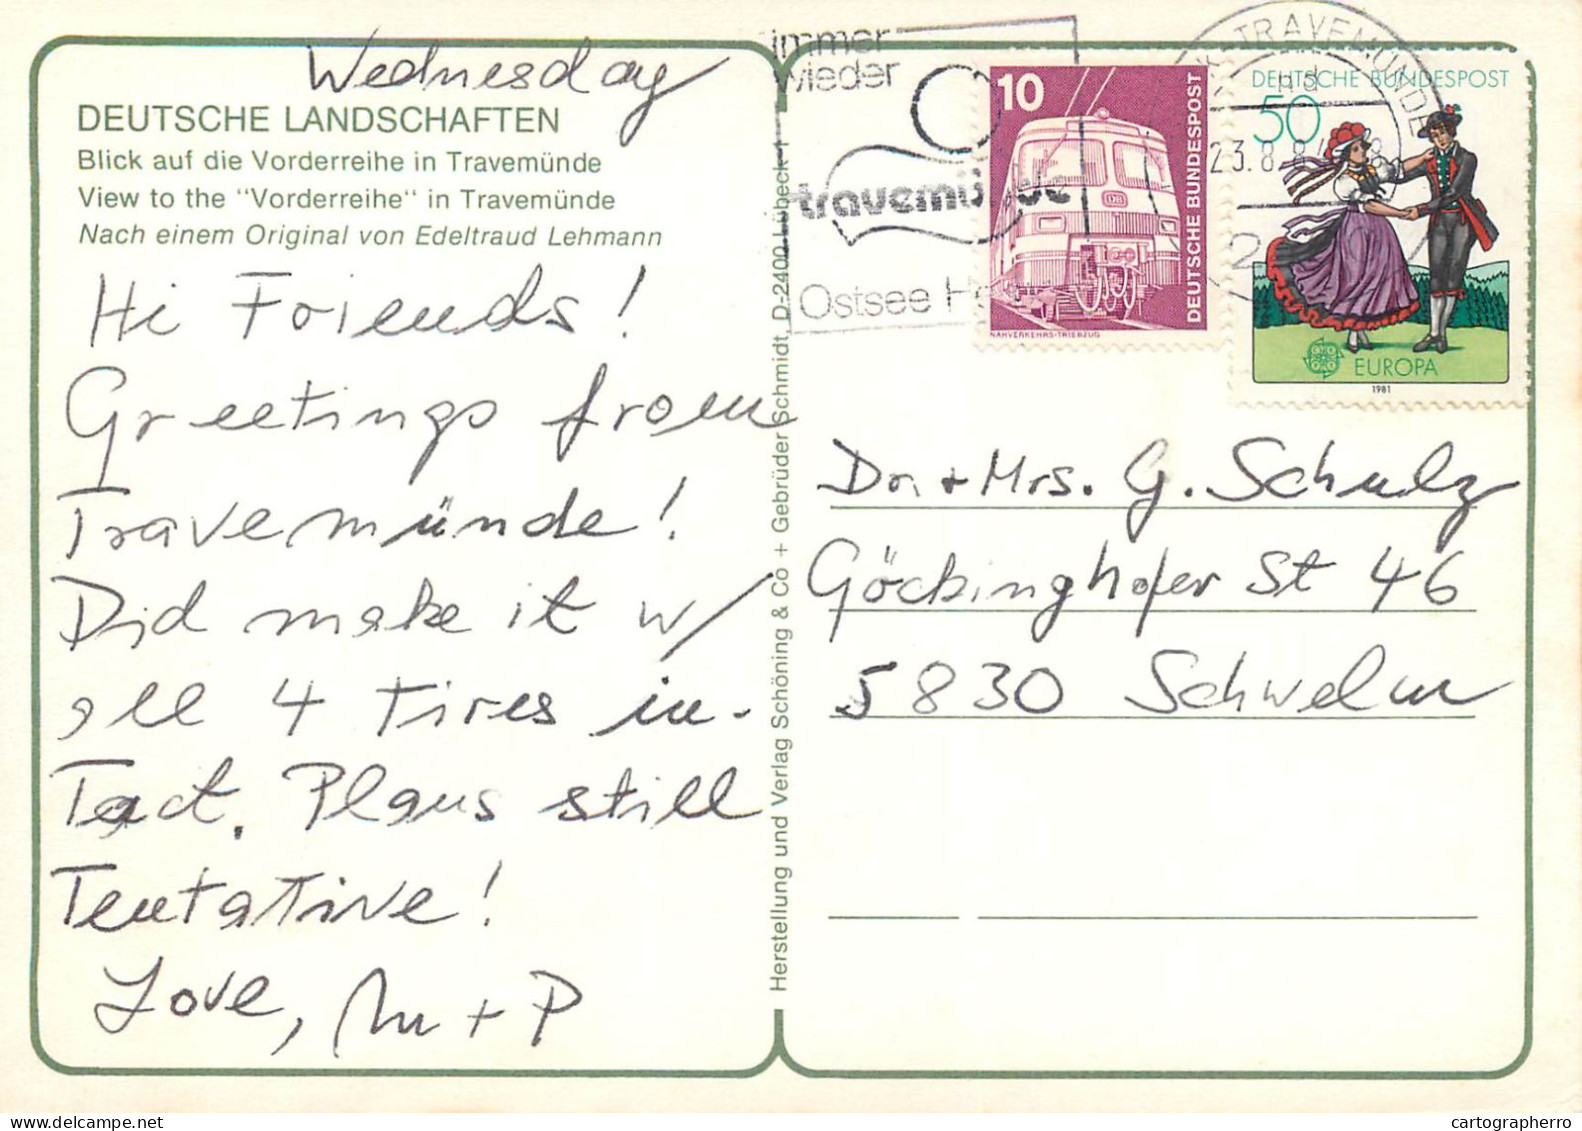 Wednesday
DEUTSCHE LANDSCHAFTEN
Blick auf die Vorderreihe in Travemünde
View to the "Vorderreihe" in Travemünde
Nach einem Original von Edeltraud Lehmann
Hi Friends!
Greetings from
Travemünde!
Did make it w/
all 4 tires in-
tact. Plans still
Tentative!
Love, M + P
Herstellung und Verlag Schöning & Co + Gebrüder Schmidt, D-2400 Lübeck 1
immer
wieder
travemünde
Ostsee
TRAVEMÜNDE
23.8.8
10
DEUTSCHE BUNDESPOST
DB
NAHVERKEHRS-TRIEBZUG
DEUTSCHE BUNDESPOST
50
EUROPA
1981
Dr. + Mrs. G. Schulz
Göckinghofer St 46
5830 Schwelm
cartographerro